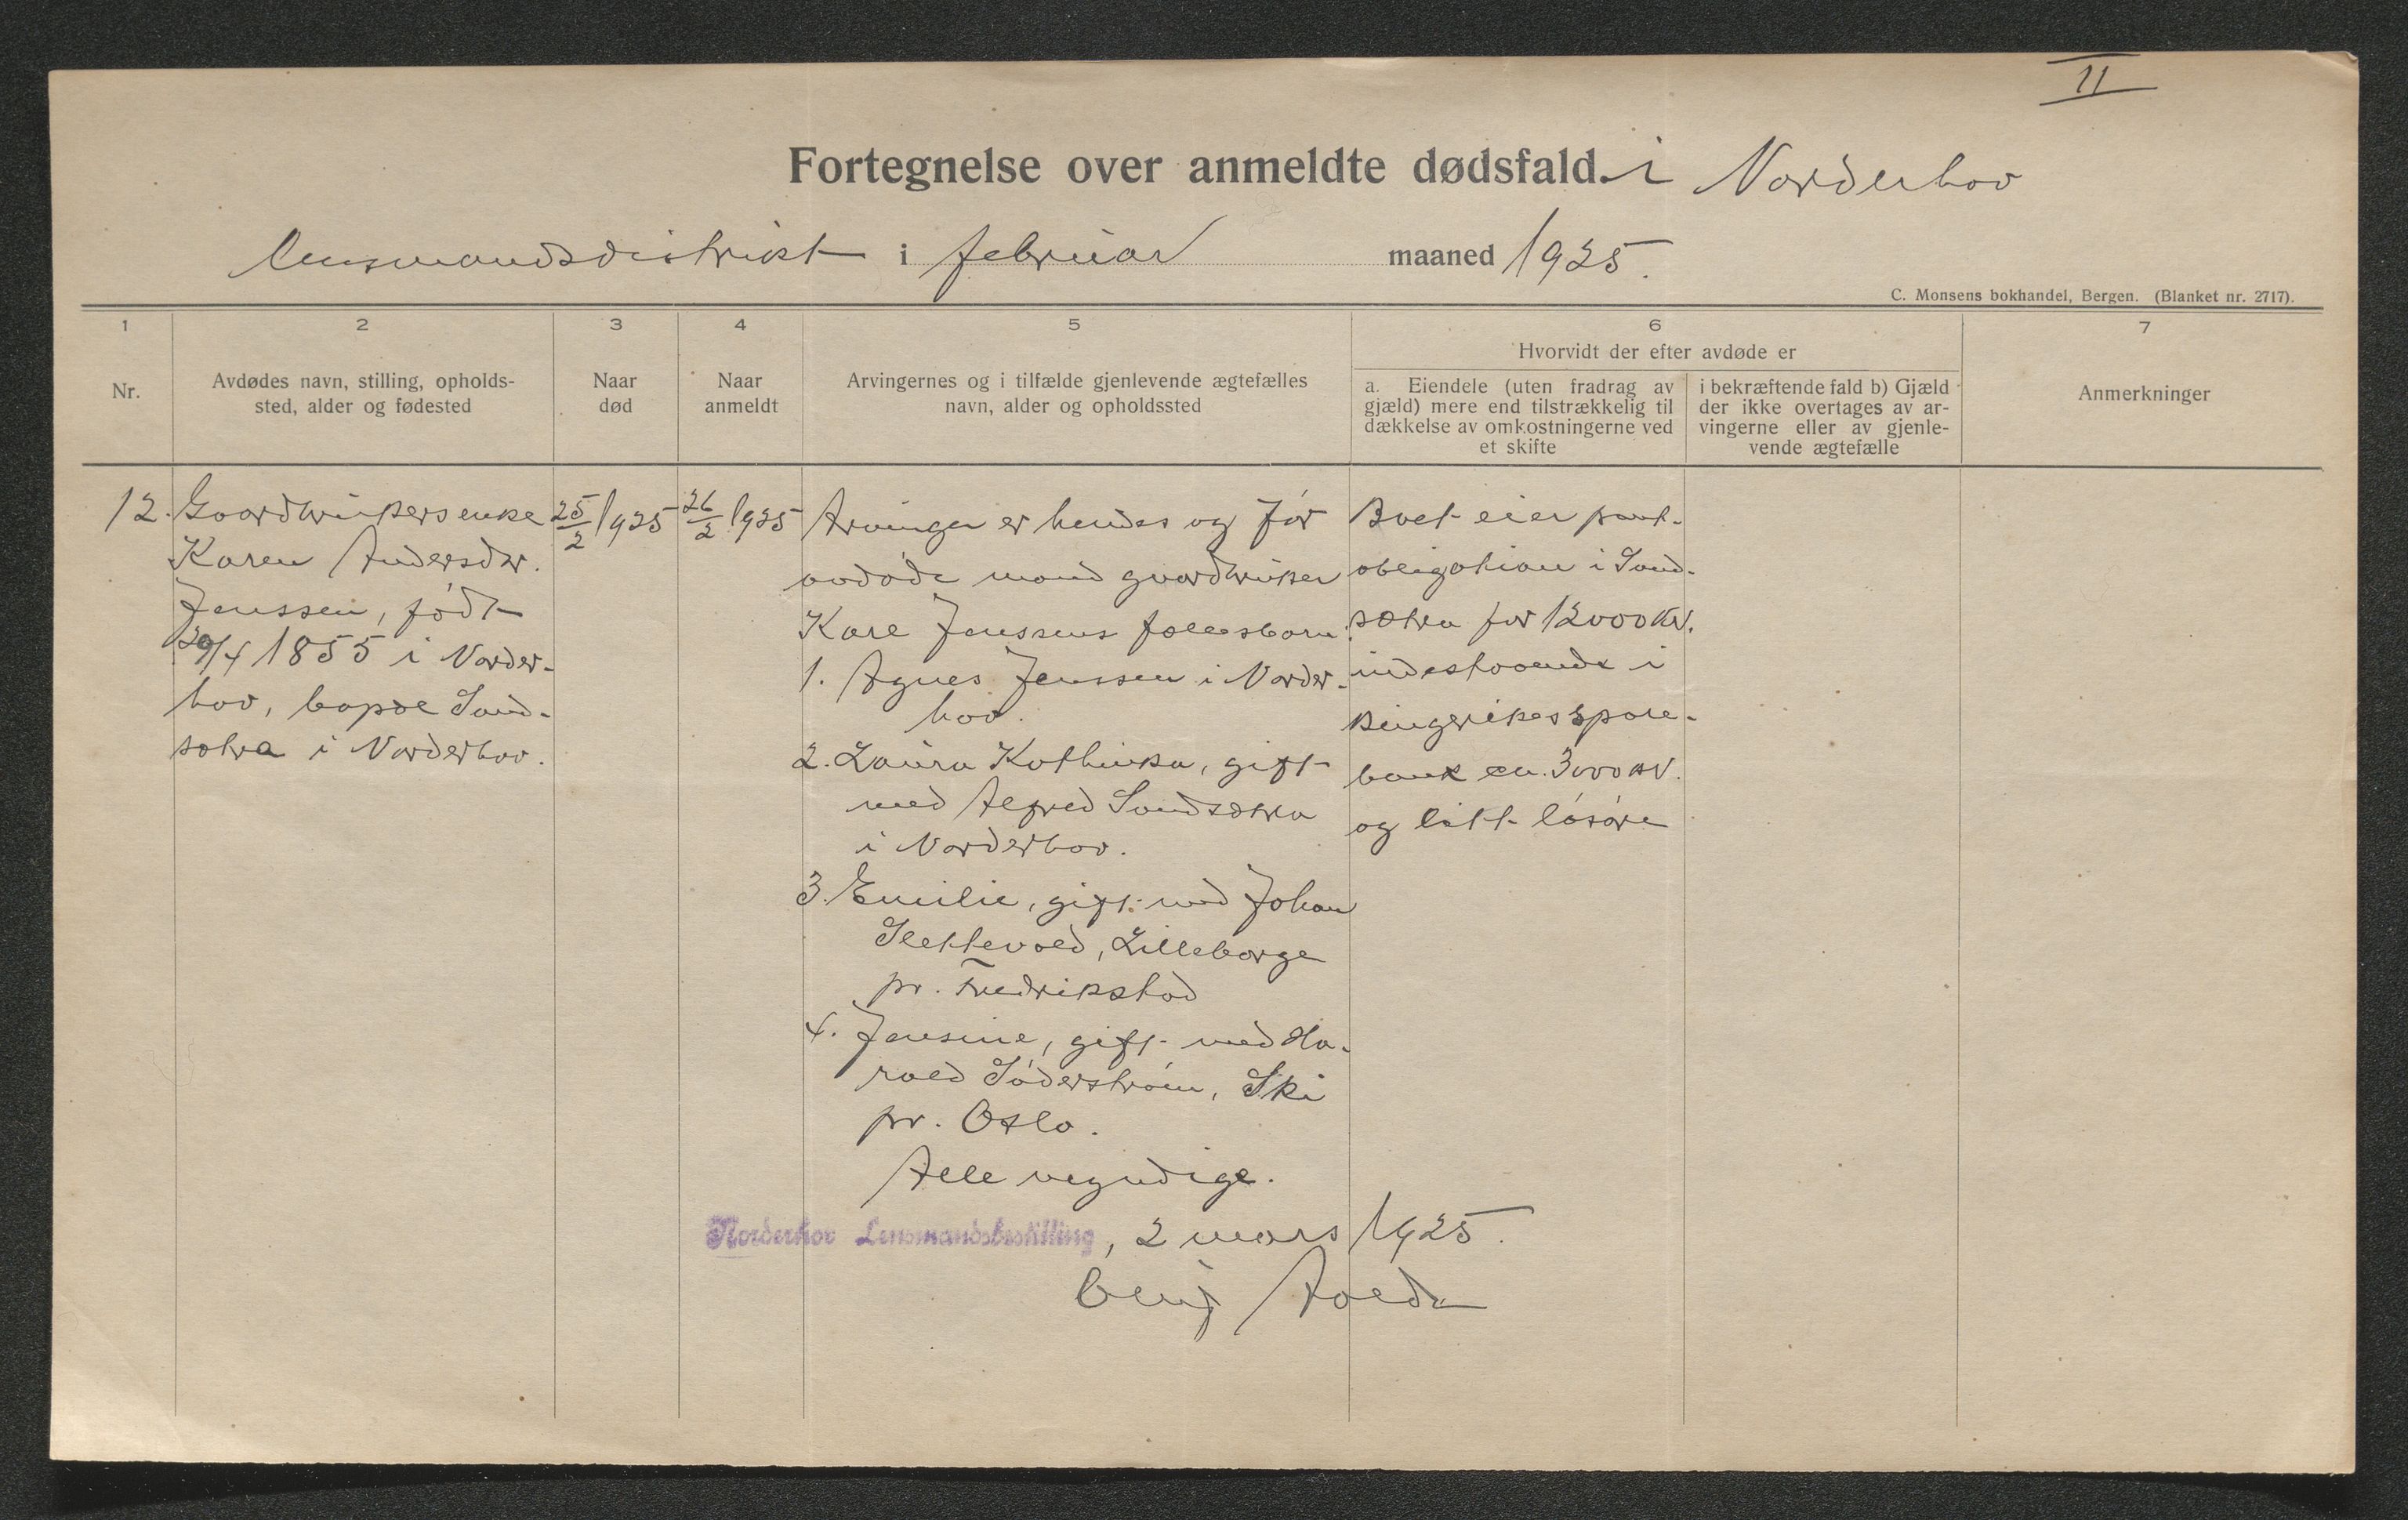 II
Fortegnelse over anmeldte dødsfald. i Norderhov
lensmandsdistrikt i februar maaned 1925.
C. Monsens bokhandel, Bergen. (Blanket nr. 2717).
1
Nr.
2
Avdødes navn, stilling, opholds-
sted, alder og fødested
3
Naar
død
4
Naar
anmeldt
5
Arvingernes og i tilfælde gjenlevende ægtefælles
navn, alder og opholdssted
6
Hvorvidt der efter avdøde er
a. Eiendele (uten fradrag av
gjæld) mere end tilstrækkelig til
dækkelse av omkostningerne ved
et skifte
i bekræftende fald b) Gjæld
der ikke overtages av ar-
vingerne eller av gjenle-
vende ægtefælle
7
Anmerkninger
12.
Gaardbrukersenke
Karen Andersdtr.
Jenssen, født
20/4 1855 i Norder-
hov, bopæl Sand-
sætra i Norderhov.
25/2 1925
26/2 1925
Arvinger er hendes og før
avdøde mand gaardbruker
Karl Jenssens fællesbarn:
1. Agnes Jenssen i Norder-
hov.
2. Laura Kathinka, gift
med Alfred Sandsætra
i Norderhov.
3. Emilie, gift med Johan
Slettevold, Lilleborge
pr. Fredrikstad
4. Jensine, gift med Ha-
rald Söderström, Ski
pr. Oslo.
Alle myndige.
Boet eier pant-
obligation i Sand-
sætra for 12000 kr.
indestaaende i
Ringerikes spare-
bank ca. 3000 kr.
og litt løsøre
Norderhov Lensmandsbestilling, 2 mars 1925.